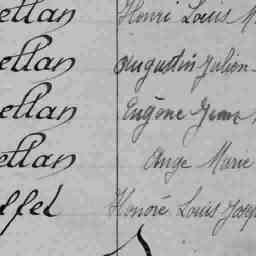 ellan Henri Louis M
ellan Augustin Julien
ellan Eugène Jean
ellan Ange Marie
ffel Honoré Louis Josep